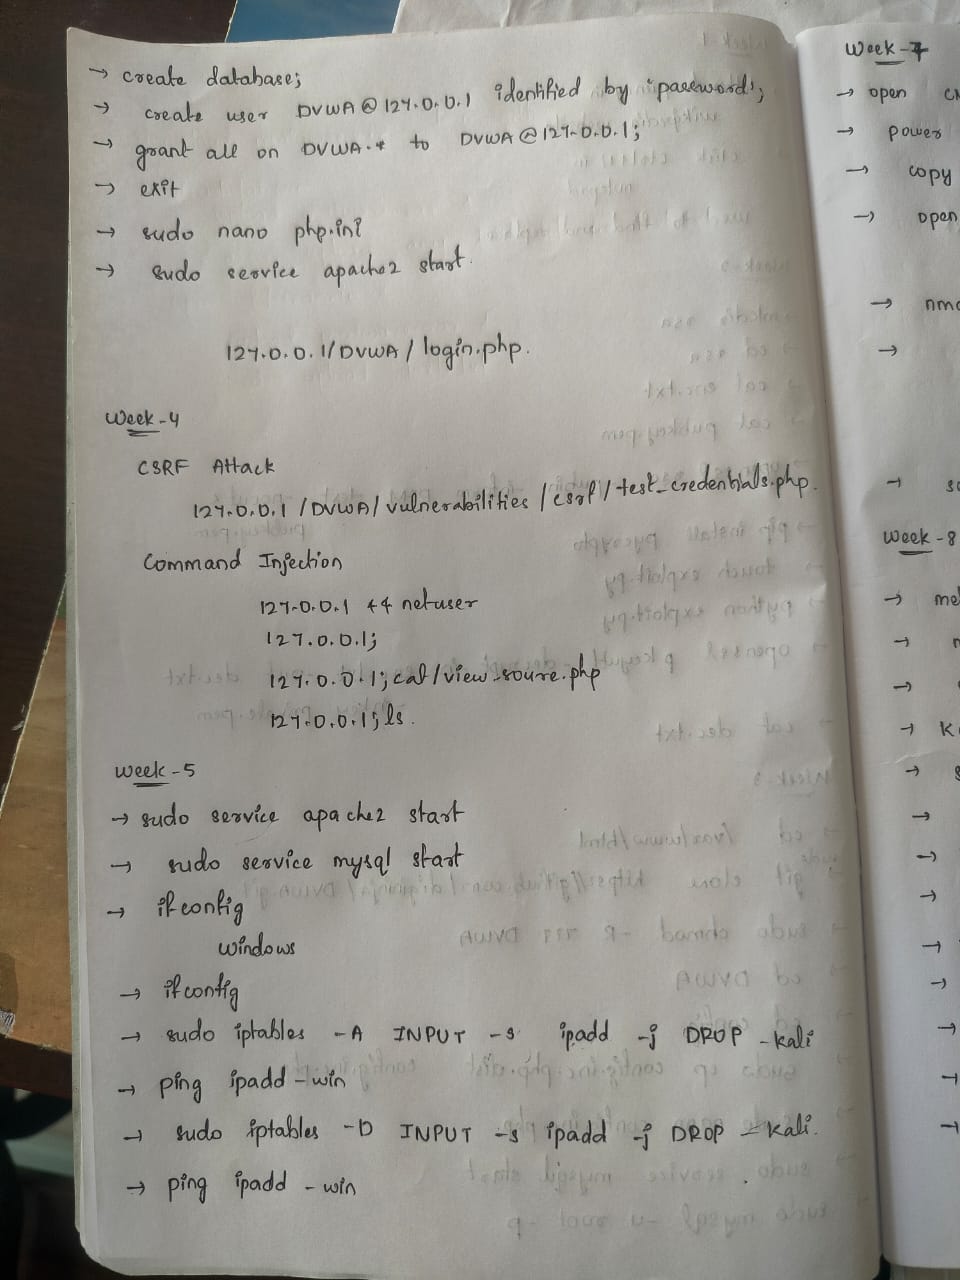 → create database;
→ create user DVWA@127.0.0.1 identified by 'password';
→ grant all on DVWA.* to DVWA@127.0.0.1;
→ exit
→ sudo nano php.ini
→ sudo service apache2 start.
127.0.0.1/DVWA/login.php.
Week-4
CSRF Attack
127.0.0.1/DVWA/vulnerabilities/csrf/test_credentials.php.
Command Injection
127.0.0.1 && netuser
127.0.0.1;
127.0.0.1;cat/view_soure.php
127.0.0.1;ls.
Week-5
→ sudo service apache2 start
→ sudo service mysql start
→ ifconfig
windows
→ ifconfig
→ sudo iptables -A INPUT -s ipadd -j DROP - kali
→ ping ipadd - win
→ sudo iptables -D INPUT -s ipadd -j DROP - kali.
→ ping ipadd - win
Week-7
→ open
→ power
→ copy
→ open
→
→
→
Week-8
→
→
→
→
→
→
→
→
→
→
→
→
→